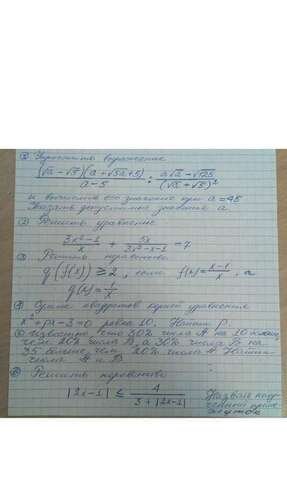 ① Упростить выражение
(√a − √5)(a + √5a + 5) / a − 5 : a√a − √125 / (√a + √5)²
и вычислить его значение при a = 45
Указать допустимые значения a
② Решить уравнение
3x² − 1 / x + 5x / 3x² − x − 1 = 7
③ Решить неравенство
g(f(x)) ≥ 2, если f(x) = x − 1 / x, а
g(x) = 1 / x
④ Сумма квадратов корней уравнения
x² + px − 3 = 0 равна 10. Найти p.
⑤ Известно, что 30% числа A на 10 больше,
чем 20% числа B, а 30% числа B на
35 больше чем 20% числа A. Найти
числа A и B
⑥ Решить неравенство
|2x − 1| ≤ 4 / 3 + |2x − 1|